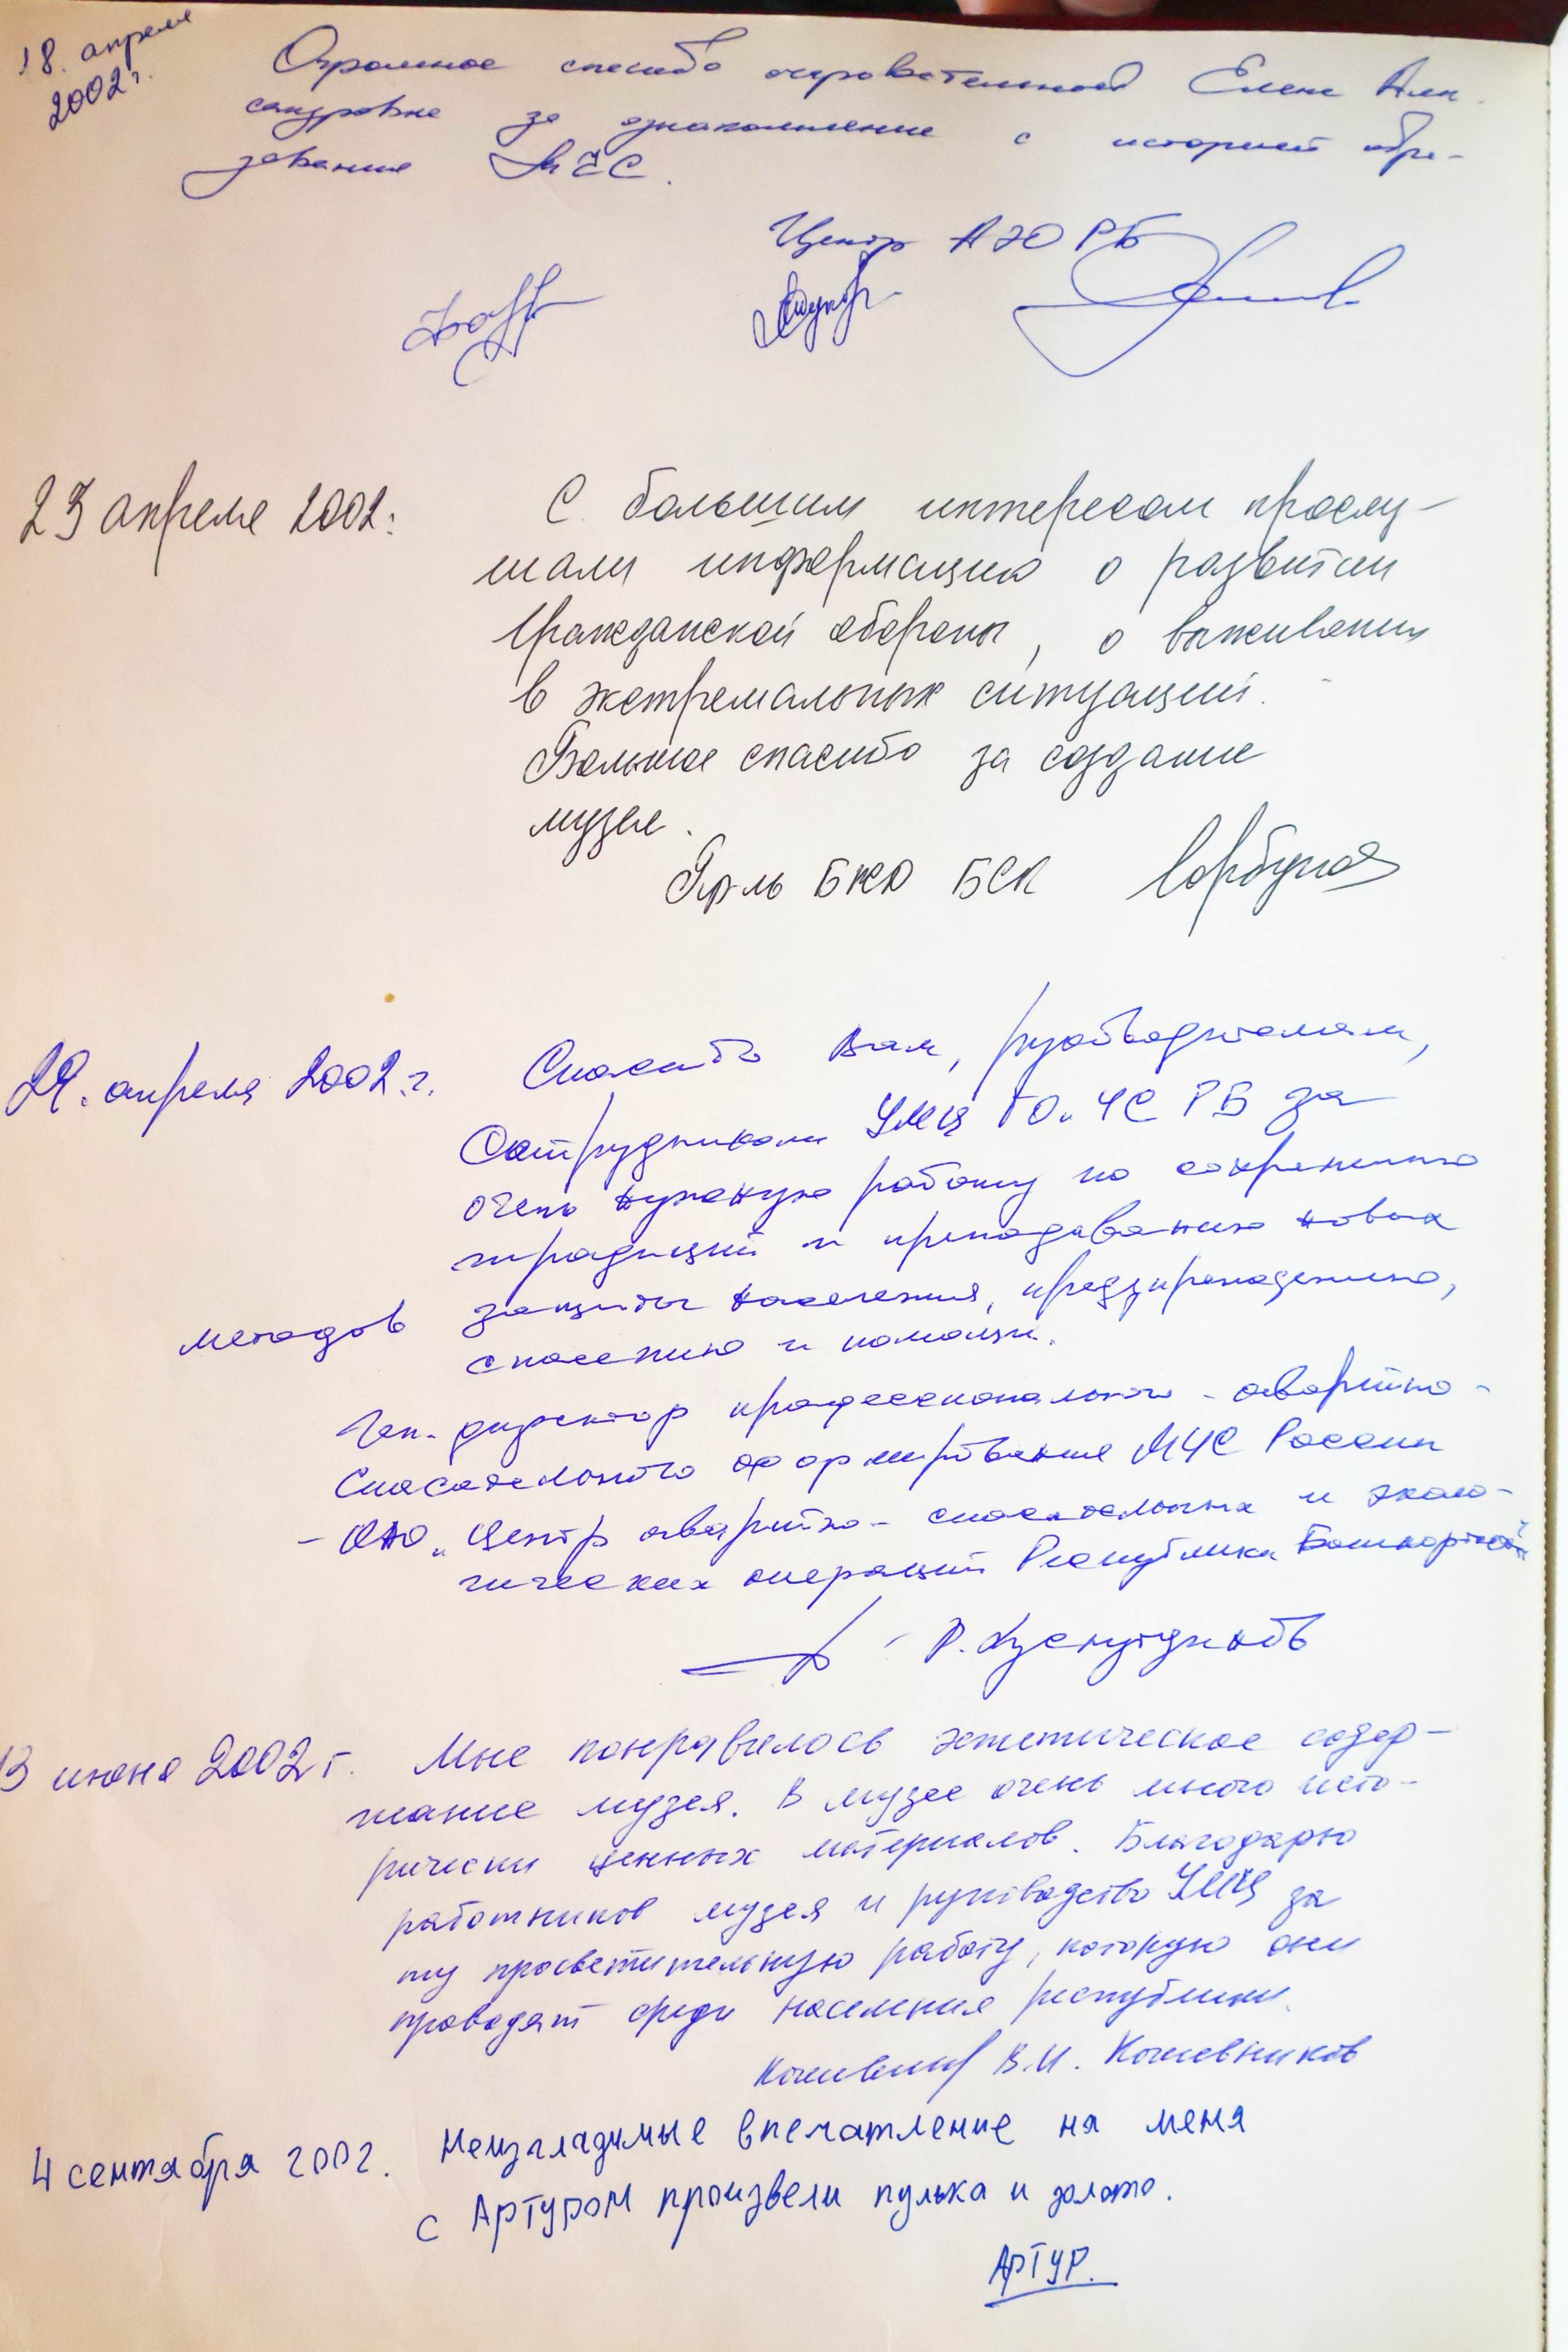 18. апреля
2002 г.
Огромное спасибо очаровательной Елене Алек-
сандровне за ознакомление с историей обра-
зования МЧС.
Центр АЭО РБ
23 апреля 2002г.
С большим интересом прослу-
шали информацию о развитии
Гражданской обороны, о выживании
в экстремальных ситуаций.
Большое спасибо за создание
музея.
Пр-ль БЖД БСК Горбунов
29. апреля 2002 г. Спасибо Вам, руководителям,
Сотрудникам УМЦ ГО и ЧС РБ за
очень нужную работу по сохранению
традиций и преподаванию новых
методов защиты населения, предупреждению,
спасению и помощи.
Ген. директор профессионального - аварийно -
Спасательного формирования МЧС России
- ОАО „Центр аварийно - спасательных и эколо-
гических операций Республики Башкортостан
Р. Хуснутдинов
13 июня 2002 г. Мне понравилось эстетическое содер-
жание музея. В музее очень много исто-
рически ценных материалов. Благодарю
работников музея и руководство УМЦ за
ту просветительную работу, которую они
проводят среди населения республики.
В.И. Кожевников
4 сентября 2002. Неизгладимые впечатление на меня
с Артуром произвели пулька и золото.
Артур.